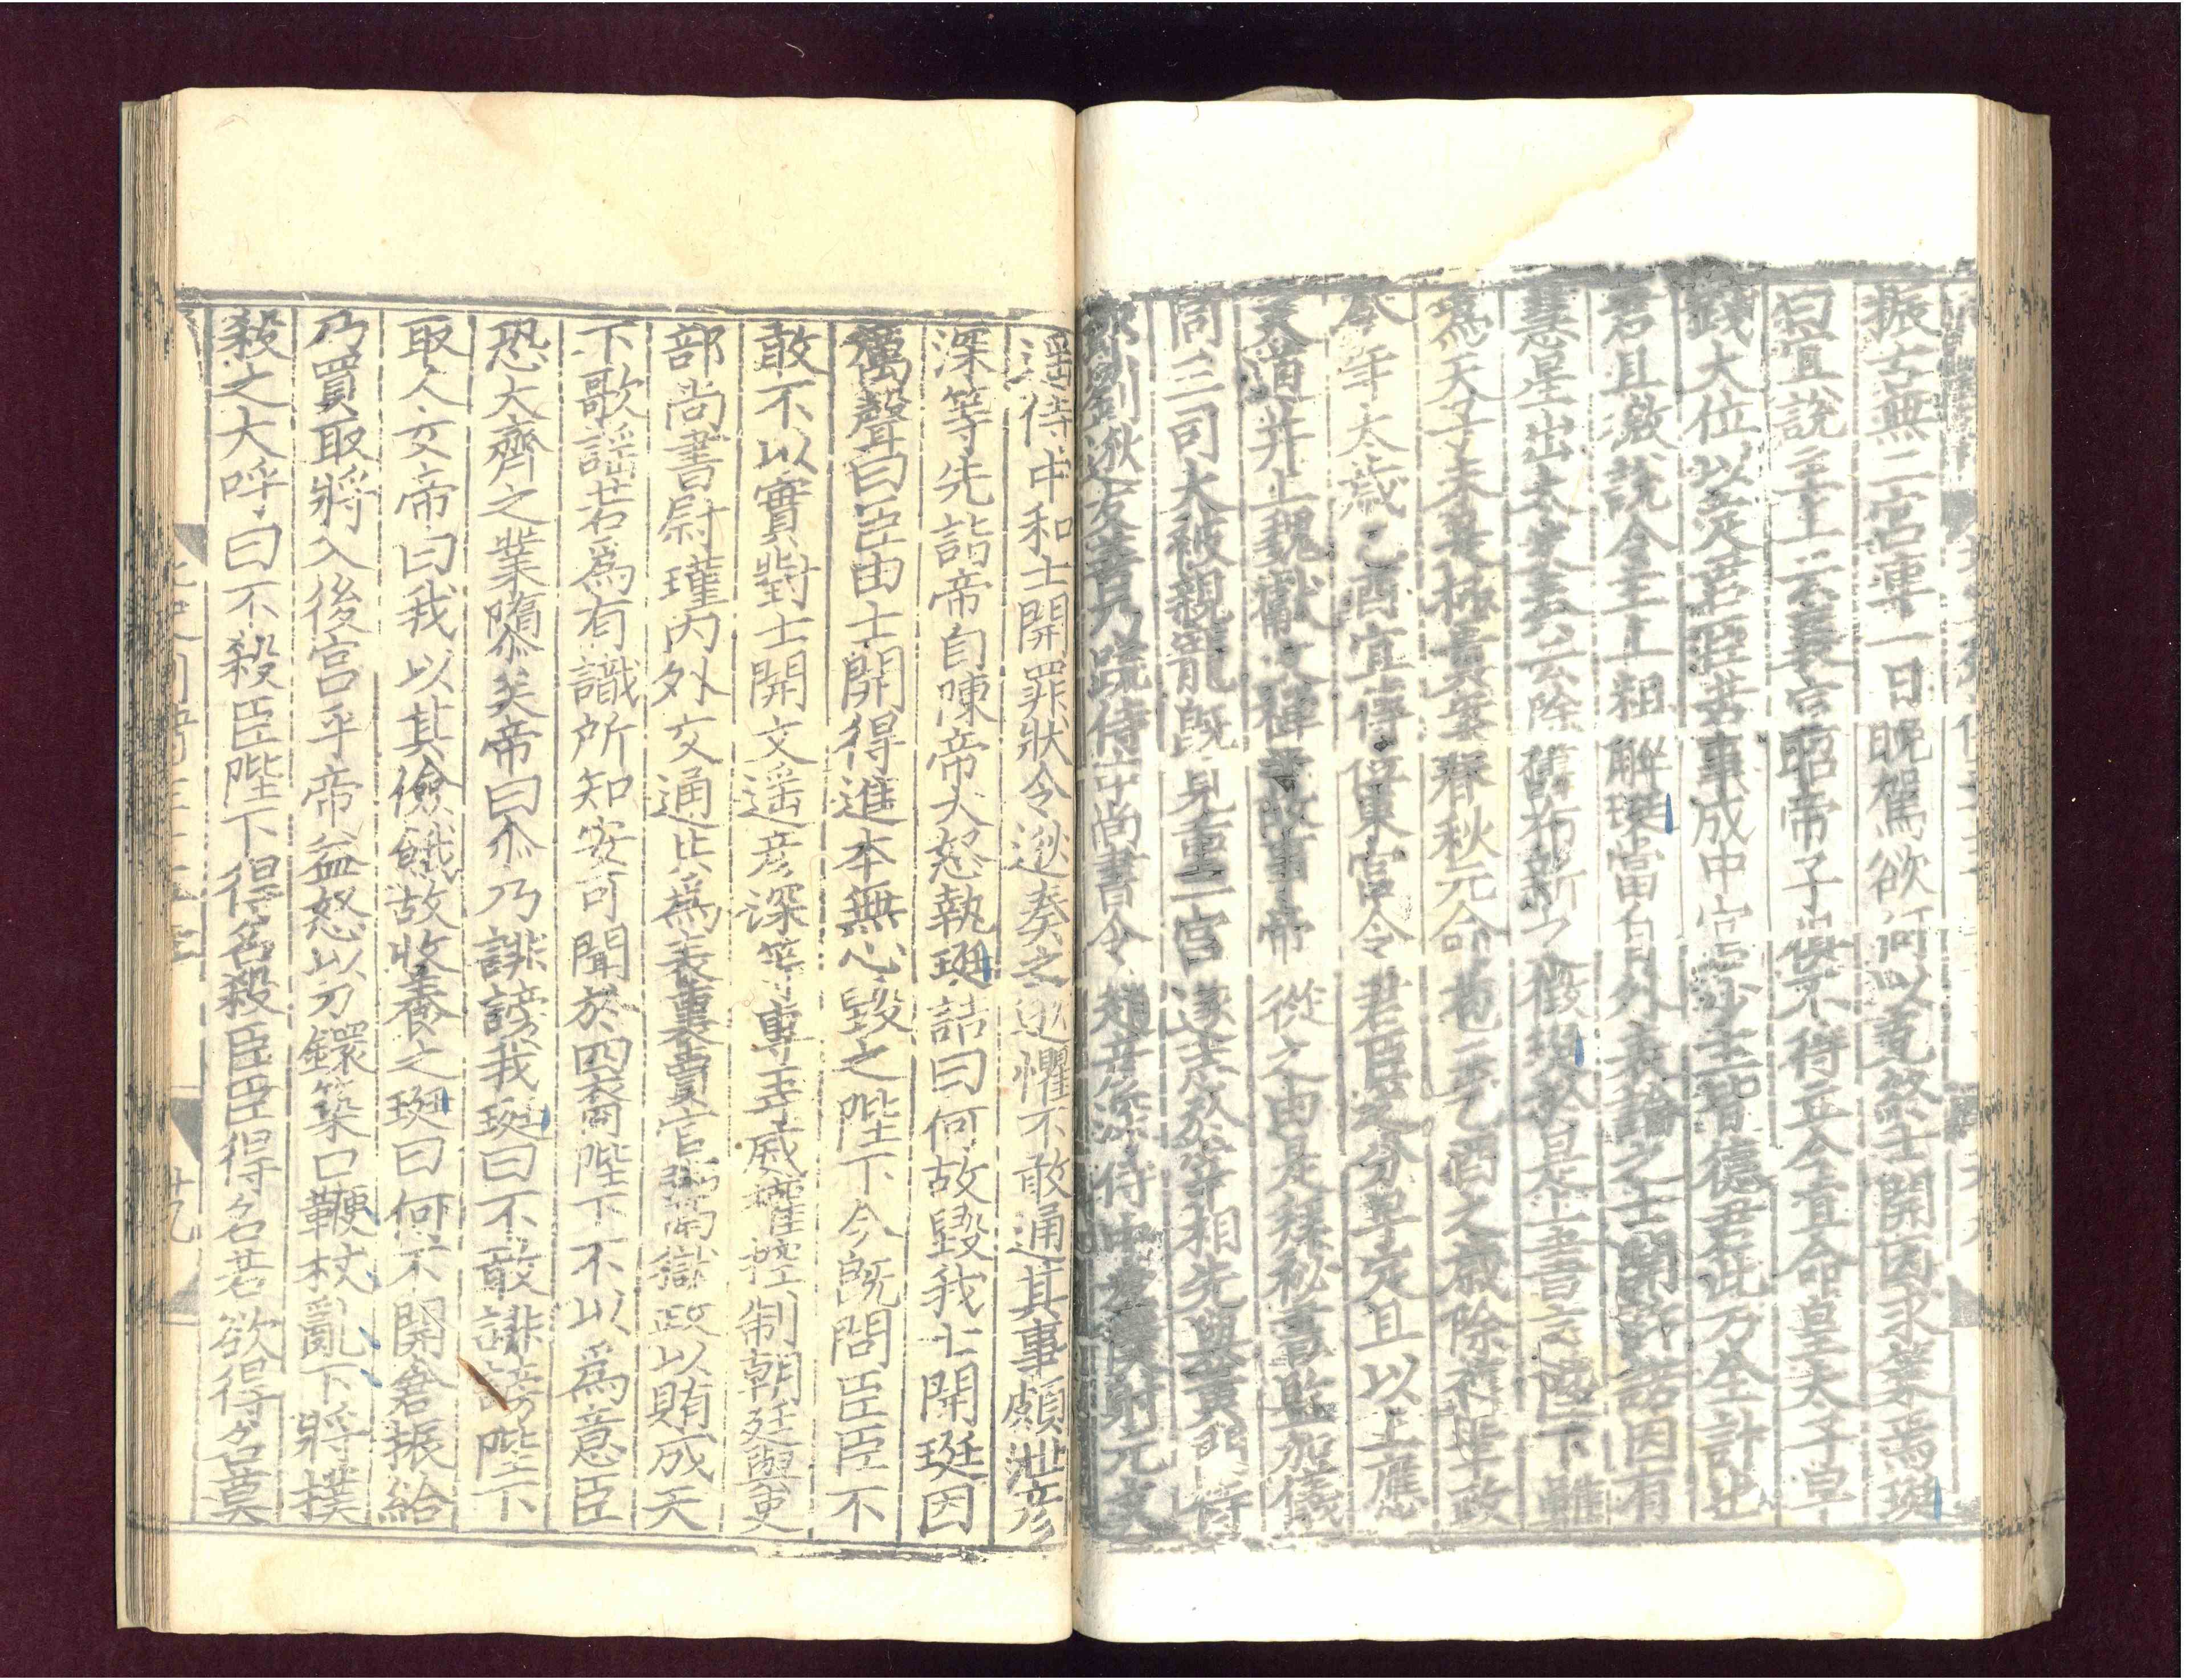 振古無二宮車一日晚駕欲何以克終士開因求策焉珽
曰宜說主上云襄宣昭帝子俱不得立今宜命皇太子早
踐大位以定君臣若事成中宮少主皆德君此乃全計也
君且微說令主上粗解珽當自外表論之士開許諾因有
彗星出太史奏云除舊布新之徵珽於是上書言陛下雖
爲天子未是極貴案春秋元命苞云乙酉之歲除舊革政
今年太歲乙酉宜傳位東宮令君臣之分早定且以上應
天道并上魏獻文禪子故事帝從之由是拜秘書監加儀
同三司大被親寵既見重二宮遂志於宰相先與黃門侍
郎劉逖友善乃疏侍中尚書令趙彦深侍中左僕射元文
遥侍中和士開罪狀令逖奏之逖懼不敢通其事頗泄彦
深等先詣帝自陳帝大怒執珽詰曰何故毀我士開珽因
厲聲曰臣由士開得進本無心毀之陛下今既問臣臣不
敢不以實對士開文遥彦深等專弄威權控制朝廷與吏
部尚書尉瑾内外交通共爲表裏賣官鬻獄政以賄成天
下歌謡若爲有識所知安可聞於四裔陛下不以爲意臣
恐大齊之業隳矣帝曰尒乃誹謗我珽曰不敢誹謗陛下
取人女帝曰我以其儉餓故收養之珽曰何不開倉振給
乃買取將入後宮乎帝益怒以刀鐶築口鞭杖亂下將撲
殺之大呼曰不殺臣陛下得名殺臣臣得名若欲得名莫